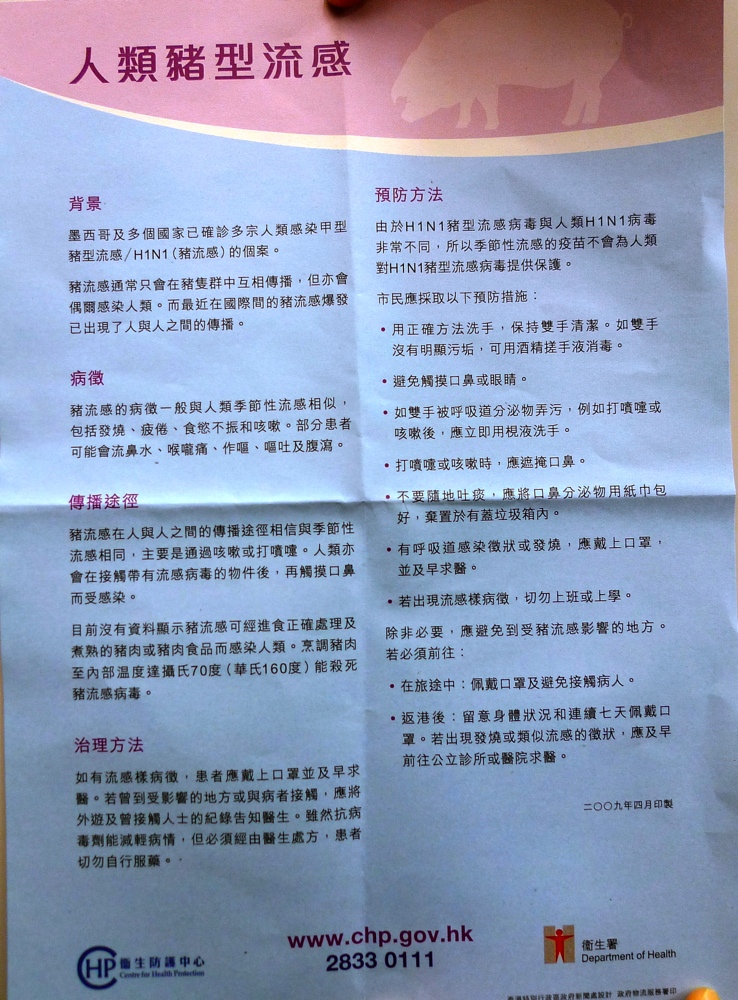 人類豬型流感
背景
墨西哥及多個國家已確診多宗人類感染甲型
豬型流感/H1N1(豬流感)的個案。
豬流感通常只會在豬隻群中互相傳播,但亦會
偶爾感染人類。而最近在國際間的豬流感爆發
已出現了人與人之間的傳播。
病徵
豬流感的病徵一般與人類季節性流感相似,
包括發燒、疲倦、食慾不振和咳嗽。部分患者
可能會流鼻水、喉嚨痛、作嘔、嘔吐及腹瀉。
傳播途徑
豬流感在人與人之間的傳播途徑相信與季節性
流感相同,主要是通過咳嗽或打噴嚏。人類亦
會在接觸帶有流感病毒的物件後,再觸摸口鼻
而受感染。
目前沒有資料顯示豬流感可經進食正確處理及
煮熟的豬肉或豬肉食品而感染人類。烹調豬肉
至內部溫度達攝氏70度(華氏160度)能殺死
豬流感病毒。
治理方法
如有流感樣病徵,患者應戴上口罩並及早求
醫。若曾到受影響的地方或與病者接觸,應將
外遊及曾接觸人士的紀錄告知醫生。雖然抗病
毒劑能減輕病情,但必須經由醫生處方,患者
切勿自行服藥。
預防方法
由於H1N1豬型流感病毒與人類H1N1病毒
非常不同,所以季節性流感的疫苗不會為人類
對H1N1豬型流感病毒提供保護。
市民應採取以下預防措施:
• 用正確方法洗手,保持雙手清潔。如雙手
沒有明顯污垢,可用酒精搓手液消毒。
• 避免觸摸口鼻或眼睛。
• 如雙手被呼吸道分泌物弄污,例如打噴嚏或
咳嗽後,應立即用梘液洗手。
• 打噴嚏或咳嗽時,應遮掩口鼻。
• 不要隨地吐痰,應將口鼻分泌物用紙巾包
好,棄置於有蓋垃圾箱內。
• 有呼吸道感染徵狀或發燒,應戴上口罩,
並及早求醫。
• 若出現流感樣病徵,切勿上班或上學。
除非必要,應避免到受豬流感影響的地方。
若必須前往:
• 在旅途中:佩戴口罩及避免接觸病人。
• 返港後:留意身體狀況和連續七天佩戴口
罩。若出現發燒或類似流感的徵狀,應及早
前往公立診所或醫院求醫。
二〇〇九年四月印製
CHP 衞生防護中心
Centre for Health Protection
www.chp.gov.hk
2833 0111
衞生署
Department of Health
香港特別行政區政府新聞處設計 政府物流服務署印